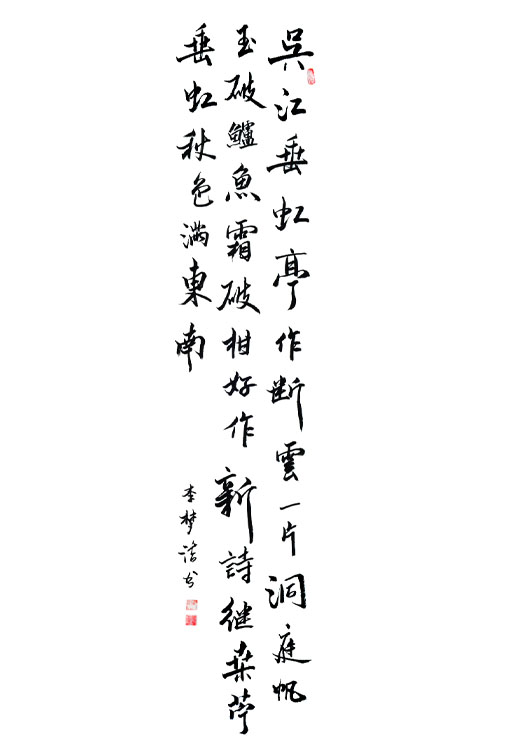 吳江垂虹亭作断雲一片洞庭帆
玉破鱸魚霜破柑好作新詩继桑苧
垂虹秋色满東南
李梦书